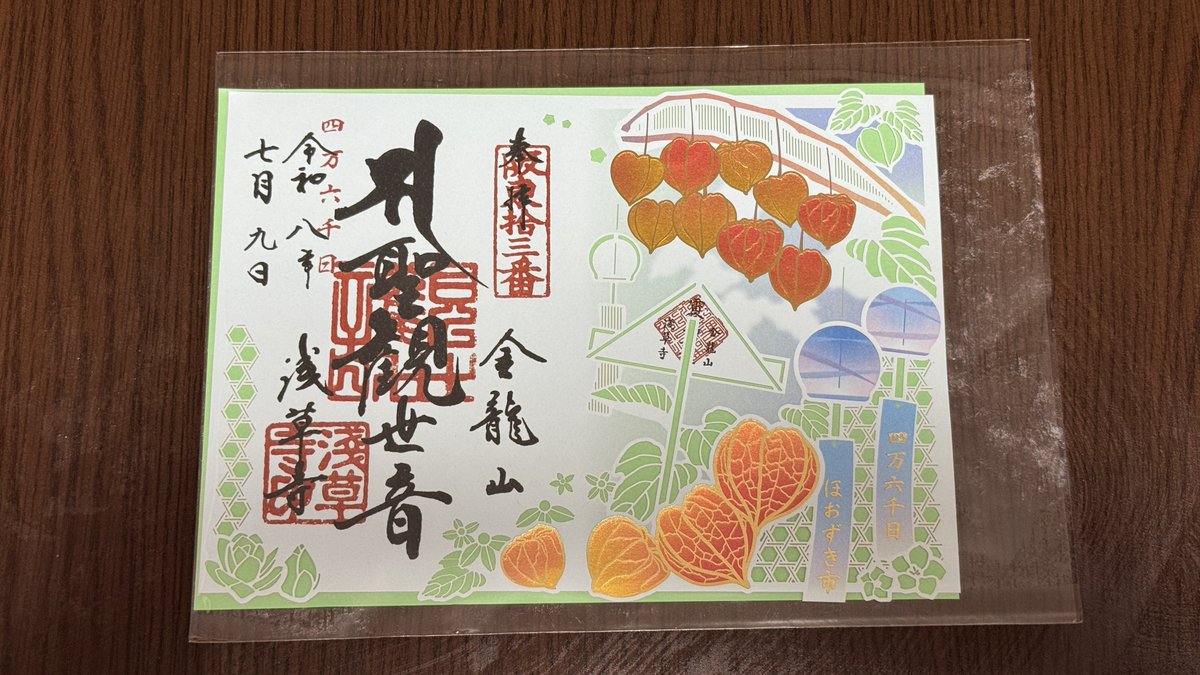 奉拝
坂東拾三番
金龍山
聖観世音
浅草寺
四万六千日
令和八年
七月九日
浅草寺
金龍山
浅草寺
四万六千日
ほおずき市